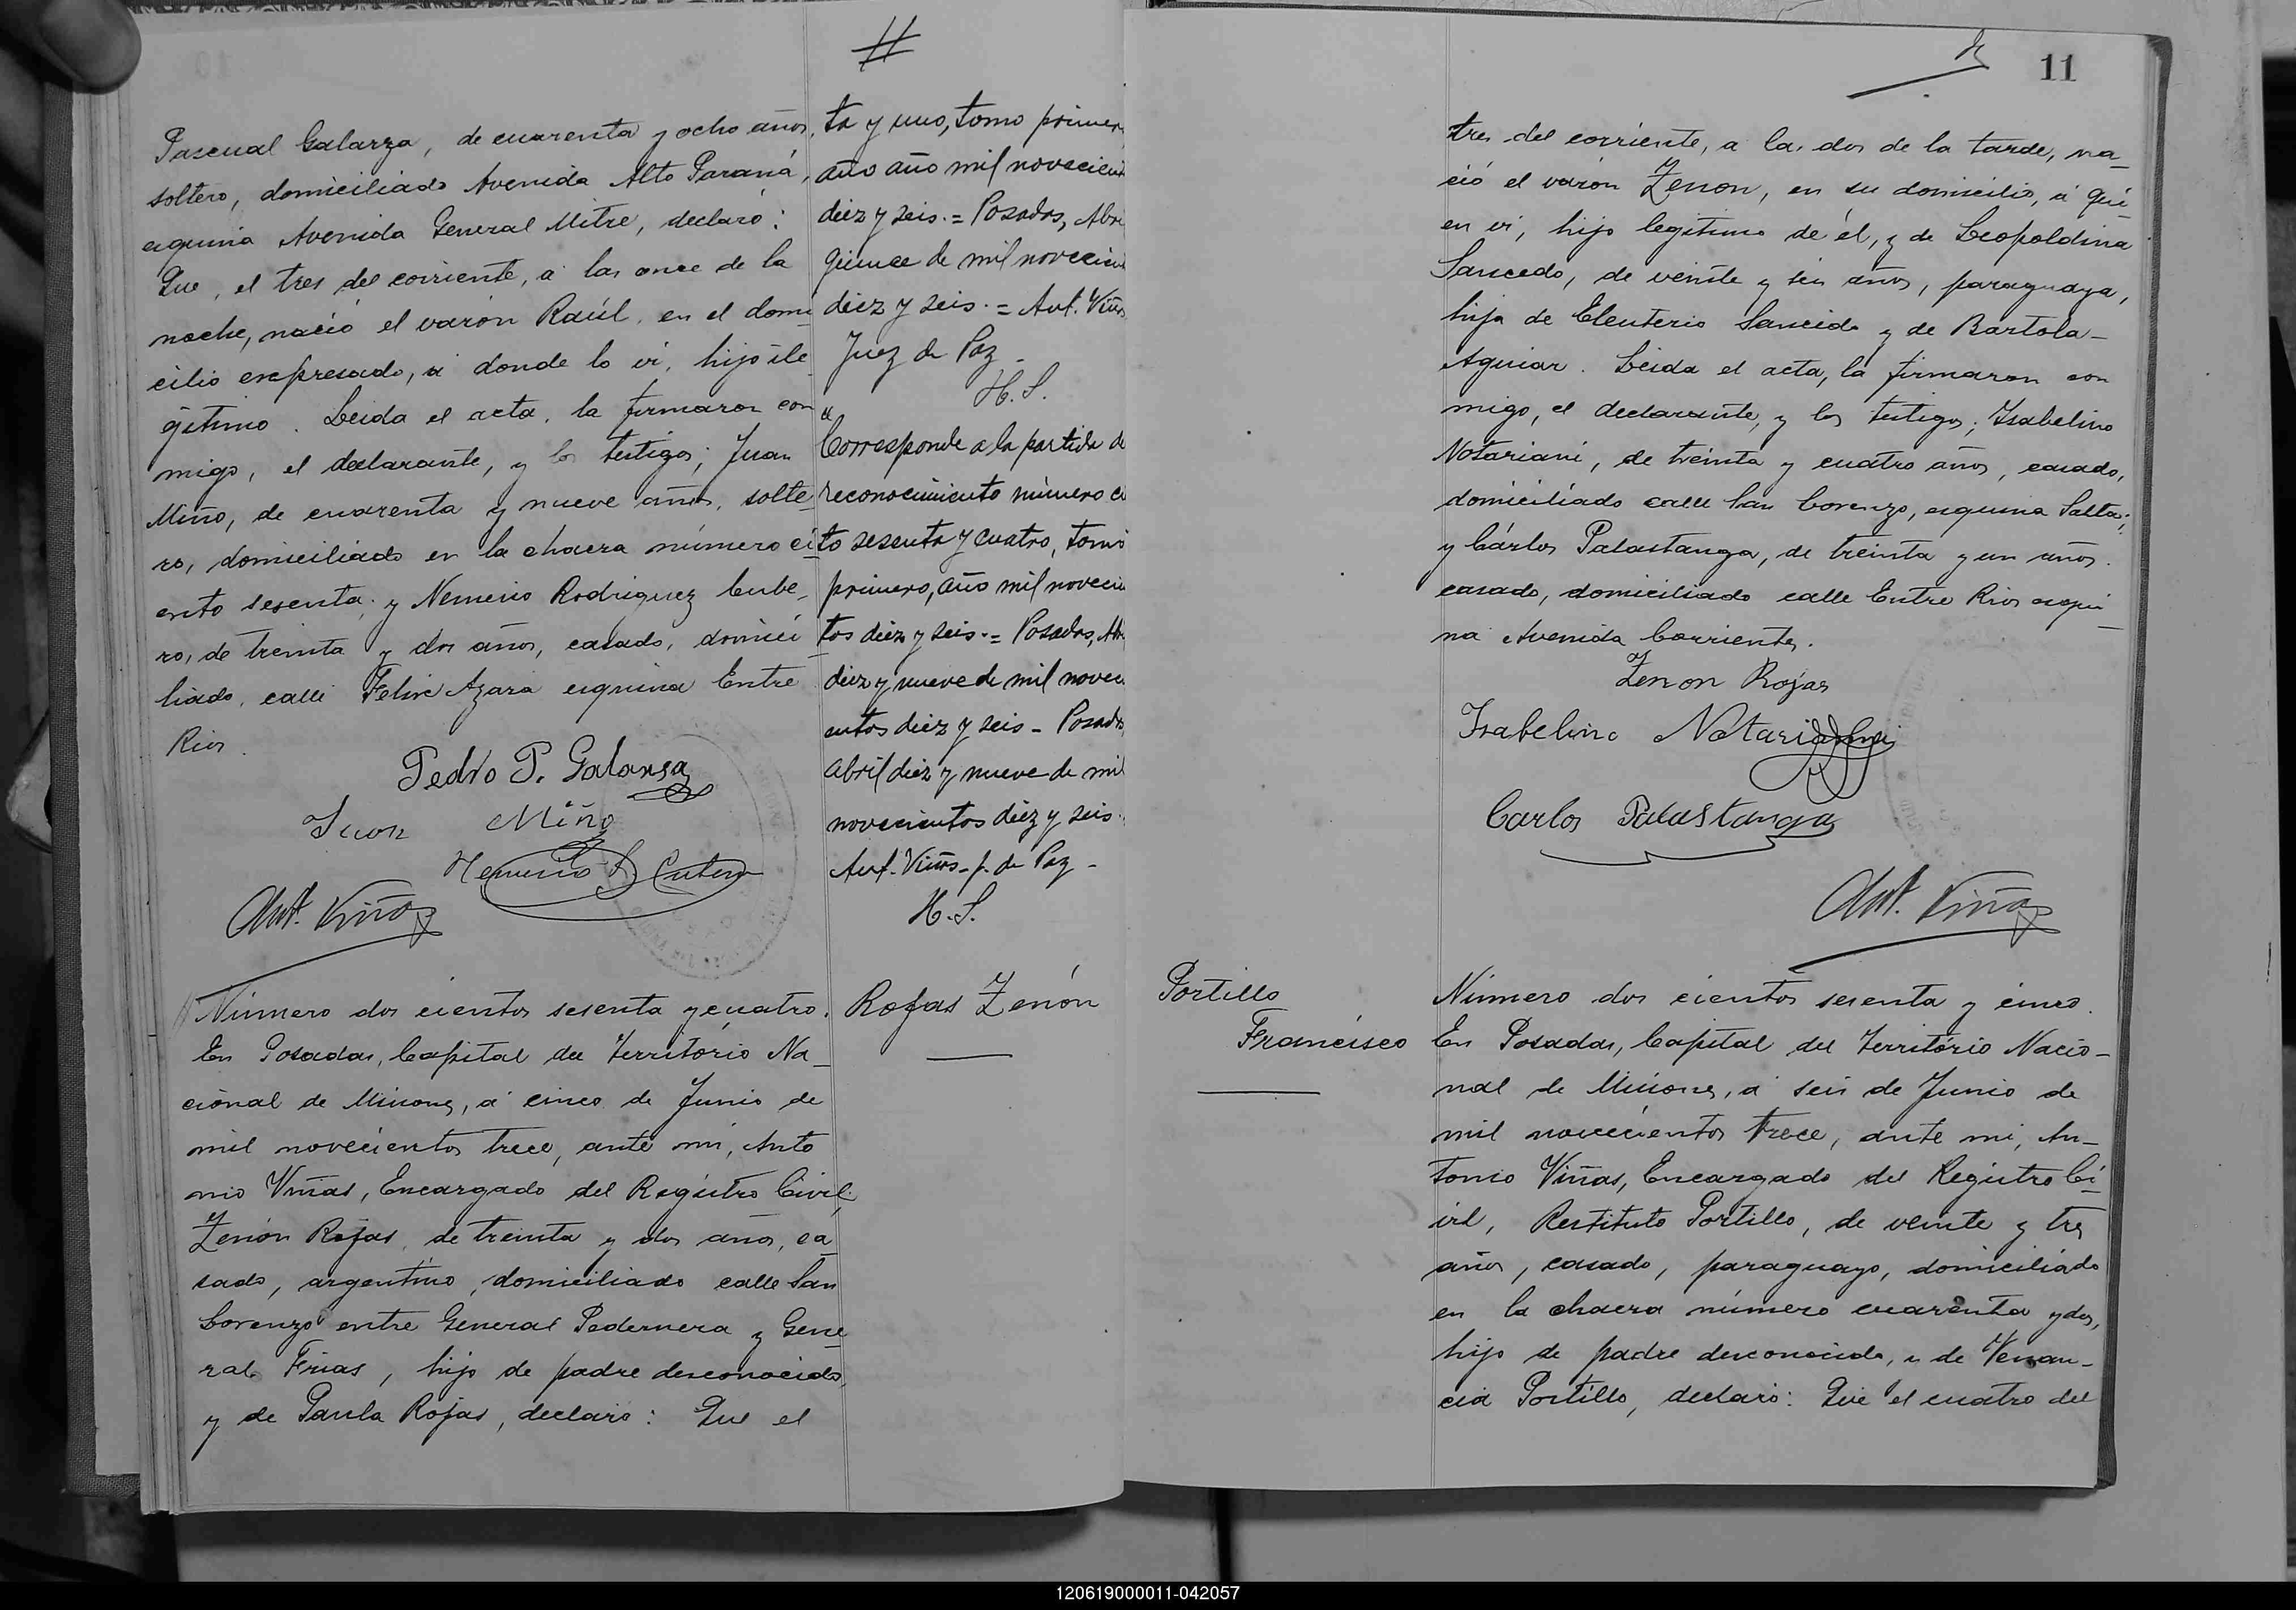 Pascual Galarza, de cuarenta y ocho años,
soltero, domiciliado Avenida Alto Paraná,
esquina Avenida General Mitre, declaró:
Que, el tres del corriente, á las once de la
noche, nació el varón Raúl, en el domi
cilio expresado, á donde lo vi, hijo ile
gítimo. Leida el acta, la firmaron con
migo, el declarante, y los testigos; Juan
Miño, de cuarenta y nueve años, solte
ro, domiciliado en la chacra número ci
ento sesenta; y Nemesio Rodriguez Cube_
ro, de treinta y dos años, casado, domici
liado, calle Felix Azara esquina Entre
Rios.
Pedro P. Galarsa
Juan Miño
Nemesio R Cubero
Ant. Viñas
#
ta y uno, tomo primer
año año mil novecien
diez y seis.= Posadas, Abri
quince de mil novecien
diez y seis.= Ant. Viñas
Juez de Paz_
H. S.
"
Corresponde a la partida de
reconocimiento número ci
to sesenta y cuatro, tomo
primero, año mil novecien
tos diez y seis.= Posadas, Ab
diez y nueve de mil noveci
entos diez y seis_ Posadas
Abril diez y nueve de mil
novecientos diez y seis.
Ant. Viñas_ J. de Paz_
H. S.
Número dos cientos sesenta y cuatro.
En Posadas, Capital del Território Na_
cional de Misiones, á cinco de Junio de
mil novecientos trece, ante mi, Anto
nio Viñas, Encargado del Registro Civil;
Zenón Rojas, de treinta y dos años, ca
sado, argentino, domiciliado calle San
Lorenzo entre General Pedernera y Gene
ral Frias, hijo de padre desconocido,
y de Paula Rojas, declaró: Que el
Rojas Zenón
11
tres del corriente, a las dos de la tarde, na_
ció el varón Zenon, en su domicilio, á qui_
en vi, hijo legítimo de él, y de Leopoldina
Saucedo, de veinte y seis años, paraguaya,
hija de Eleuterio Saucedo y de Bartola_
Aguiar. Leida el acta, la firmaron con
migo, el declarante, y los testigos; Isabelino
Notariani, de treinta y cuatro años, casado,
domiciliado calle San Lorenzo, esquina Salta;
y Cárlos Palastanga, de treinta y un años.
casado, domiciliado calle Entre Rios esqui_
na Avenida Corrientes.
Zenon Rojas
Isabelino Notariani
Carlos Palastanga
Ant. Viñas
Portillo
Francisco
Número dos cientos sesenta y cinco.
En Posadas, Capital del Território Nacio_
nal de Misiones, á seis de Junio de
mil novecientos trece, ante mi, An_
tonio Viñas, Encargado del Registro Ci_
vil, Restituto Portillo, de veinte y tres
años, casado, paraguayo, domiciliado
en la chacra número cuarenta y dos,
hijo de padre desconocido, y de Venan_
cia Portillo, declaró: Que el cuatro del
120619000011-042057